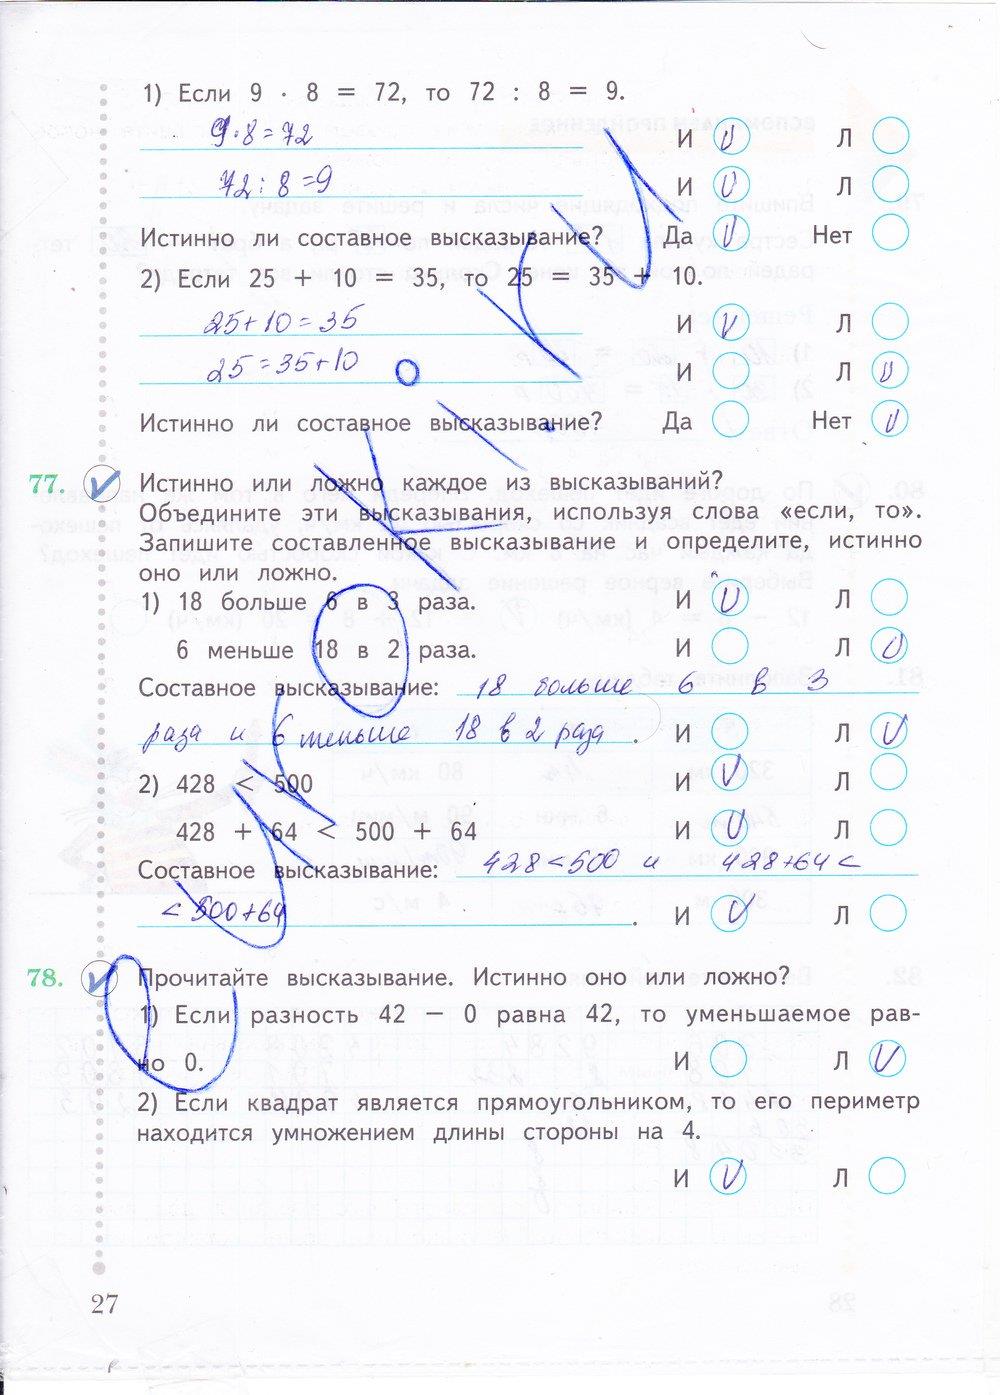 1) Если 9 · 8 = 72, то 72 : 8 = 9.
9·8=72 И V Л
72:8=9 И V Л
Истинно ли составное высказывание? Да V Нет
2) Если 25 + 10 = 35, то 25 = 35 + 10.
25+10=35 И V Л
25=35+10 И Л V
Истинно ли составное высказывание? Да Нет V
77. Истинно или ложно каждое из высказываний?
Объедините эти высказывания, используя слова «если, то».
Запишите составленное высказывание и определите, истинно
оно или ложно.
1) 18 больше 6 в 3 раза. И V Л
6 меньше 18 в 2 раза. И Л V
Составное высказывание: 18 больше 6 в 3
раза и 6 меньше 18 в 2 раза. И Л V
2) 428 < 500 И V Л
428 + 64 < 500 + 64 И V Л
Составное высказывание: 428<500 и 428+64<
<500+64. И V Л
78. Прочитайте высказывание. Истинно оно или ложно?
1) Если разность 42 − 0 равна 42, то уменьшаемое рав-
но 0. И Л V
2) Если квадрат является прямоугольником, то его периметр
находится умножением длины стороны на 4.
И V Л
27